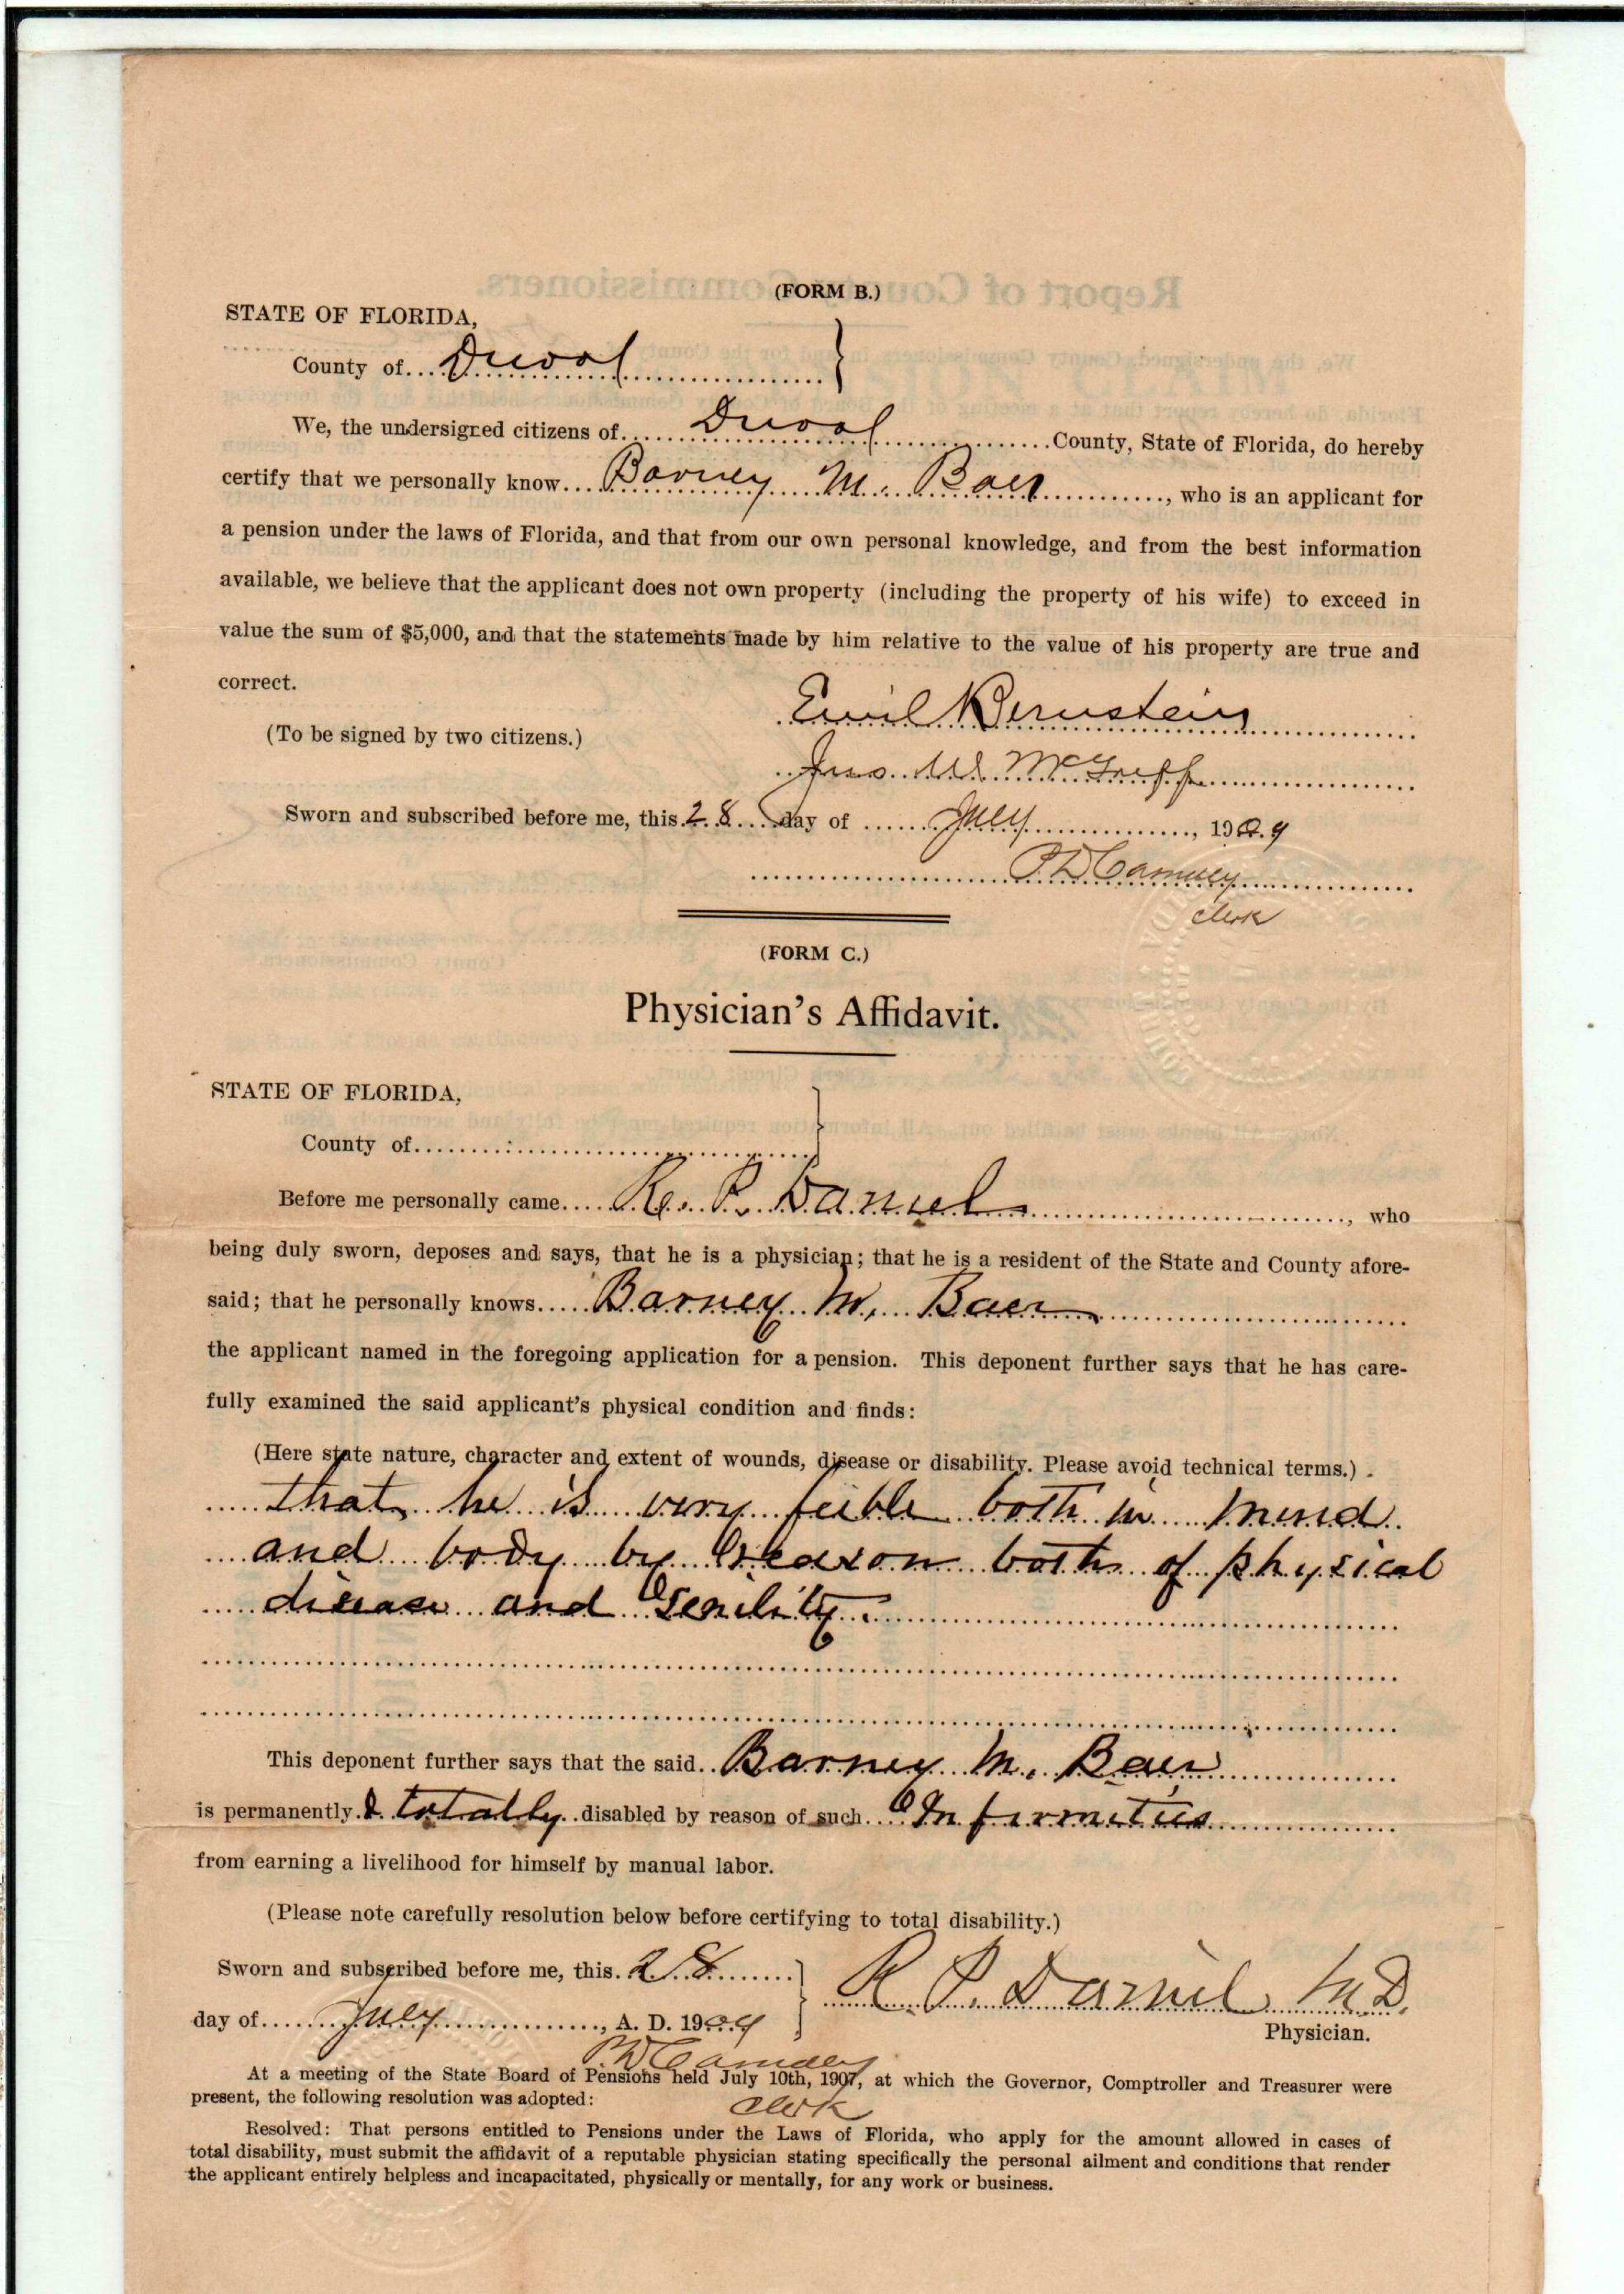 (FORM B.)
STATE OF FLORIDA,
County of Duval
We, the undersigned citizens of Duval County, State of Florida, do hereby
certify that we personally know Barney M. Baer, who is an applicant for
a pension under the laws of Florida, and that from our own personal knowledge, and from the best information
available, we believe that the applicant does not own property (including the property of his wife) to exceed in
value the sum of $5,000, and that the statements made by him relative to the value of his property are true and
correct.
Emil Bernstein
(To be signed by two citizens.)
Jno. W. McGriff
Sworn and subscribed before me, this 28 day of July, 1909
P D Cassidey
clerk
(FORM C.)
Physician's Affidavit.
STATE OF FLORIDA,
County of
Before me personally came R. P. Daniel, who
being duly sworn, deposes and says, that he is a physician; that he is a resident of the State and County afore-
said; that he personally knows Barney M. Baer
the applicant named in the foregoing application for a pension. This deponent further says that he has care-
fully examined the said applicant's physical condition and finds:
(Here state nature, character and extent of wounds, disease or disability. Please avoid technical terms.)
that he is very feeble both in mind
and body by reason both of physical
disease and senility.
This deponent further says that the said Barney M. Baer
is permanently & totally disabled by reason of such Infirmities
from earning a livelihood for himself by manual labor.
(Please note carefully resolution below before certifying to total disability.)
Sworn and subscribed before me, this 28
R. P. Daniel M.D.
day of July, A. D. 1909
Physician.
P D Cassidey
At a meeting of the State Board of Pensions held July 10th, 1907, at which the Governor, Comptroller and Treasurer were
present, the following resolution was adopted:
clerk
Resolved: That persons entitled to Pensions under the Laws of Florida, who apply for the amount allowed in cases of
total disability, must submit the affidavit of a reputable physician stating specifically the personal ailment and conditions that render
the applicant entirely helpless and incapacitated, physically or mentally, for any work or business.